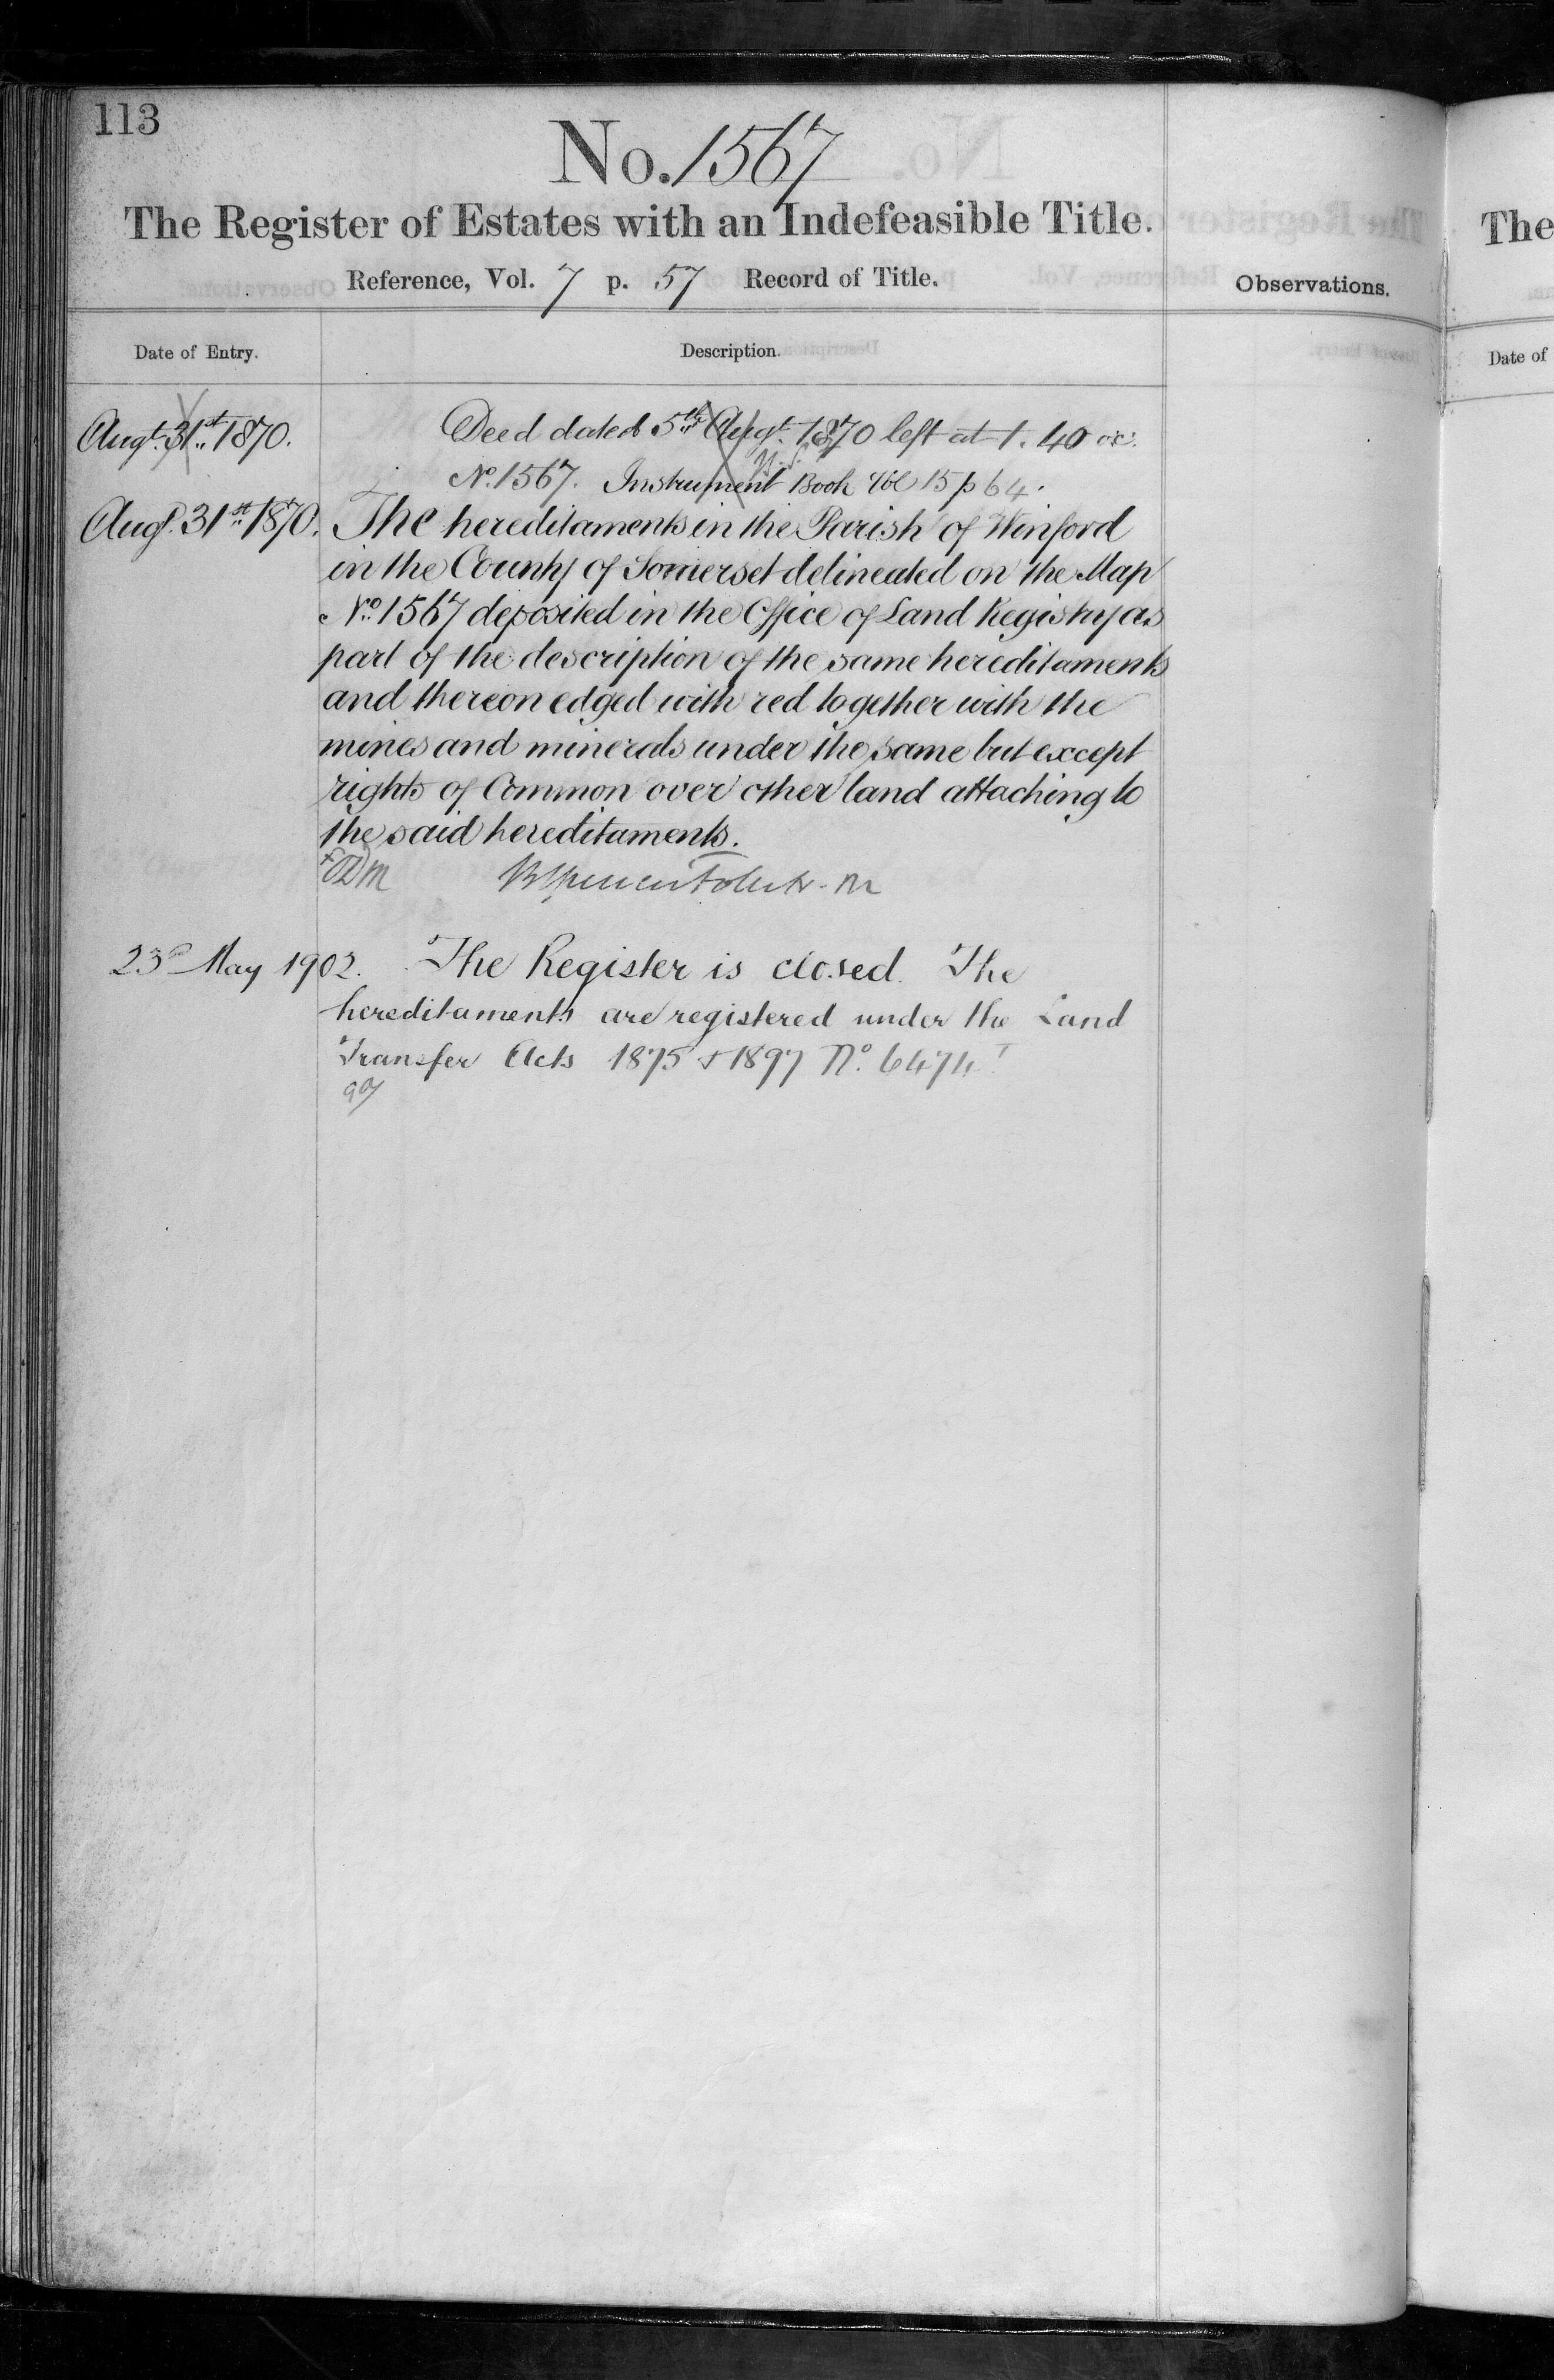 113
No. 1567
The Register of Estates with an Indefeasible Title.
Reference, Vol. 7 p. 57 Record of Title.
Observations.
Date of Entry.
Description.
Augt. 31st 1870.
Deed dated 5th Augt. 1870 left at 1.40 oc.
No. 1567. Instrument Book Vol 15 p 64.
Augt. 31st 1870.
The hereditaments in the Parish of Winford
in the County of Somerset delineated on the Map
No. 1567 deposited in the Office of Land Registry as
part of the description of the same hereditaments
and thereon edged with red together with the
mines and minerals under the same but except
rights of Common over other land attaching to
the said hereditaments.
23d May 1902.
The Register is closed. The
hereditaments are registered under the Land
Transfer Acts 1875 & 1897 No. 6474
The
Date of